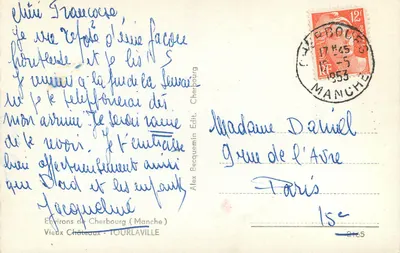 Chère Françoise
Je me repose d'une façon
honteuse et je lis
Je viens à la fin de la semaine
je te téléphonerai dès
mon arrivée. Je serai ravie
de te revoir. Je t'embrasse
bien affectueusement ainsi
que David et les enfants
Jacqueline
Environs de Cherbourg (Manche)
Vieux Châteaux - TOURLAVILLE
Alex Becquemin Edit. Cherbourg
12F
CHERBOURG
17H45
15-5
1953
MANCHE
Madame Daniel
9 rue de l'Avre
Paris
15e